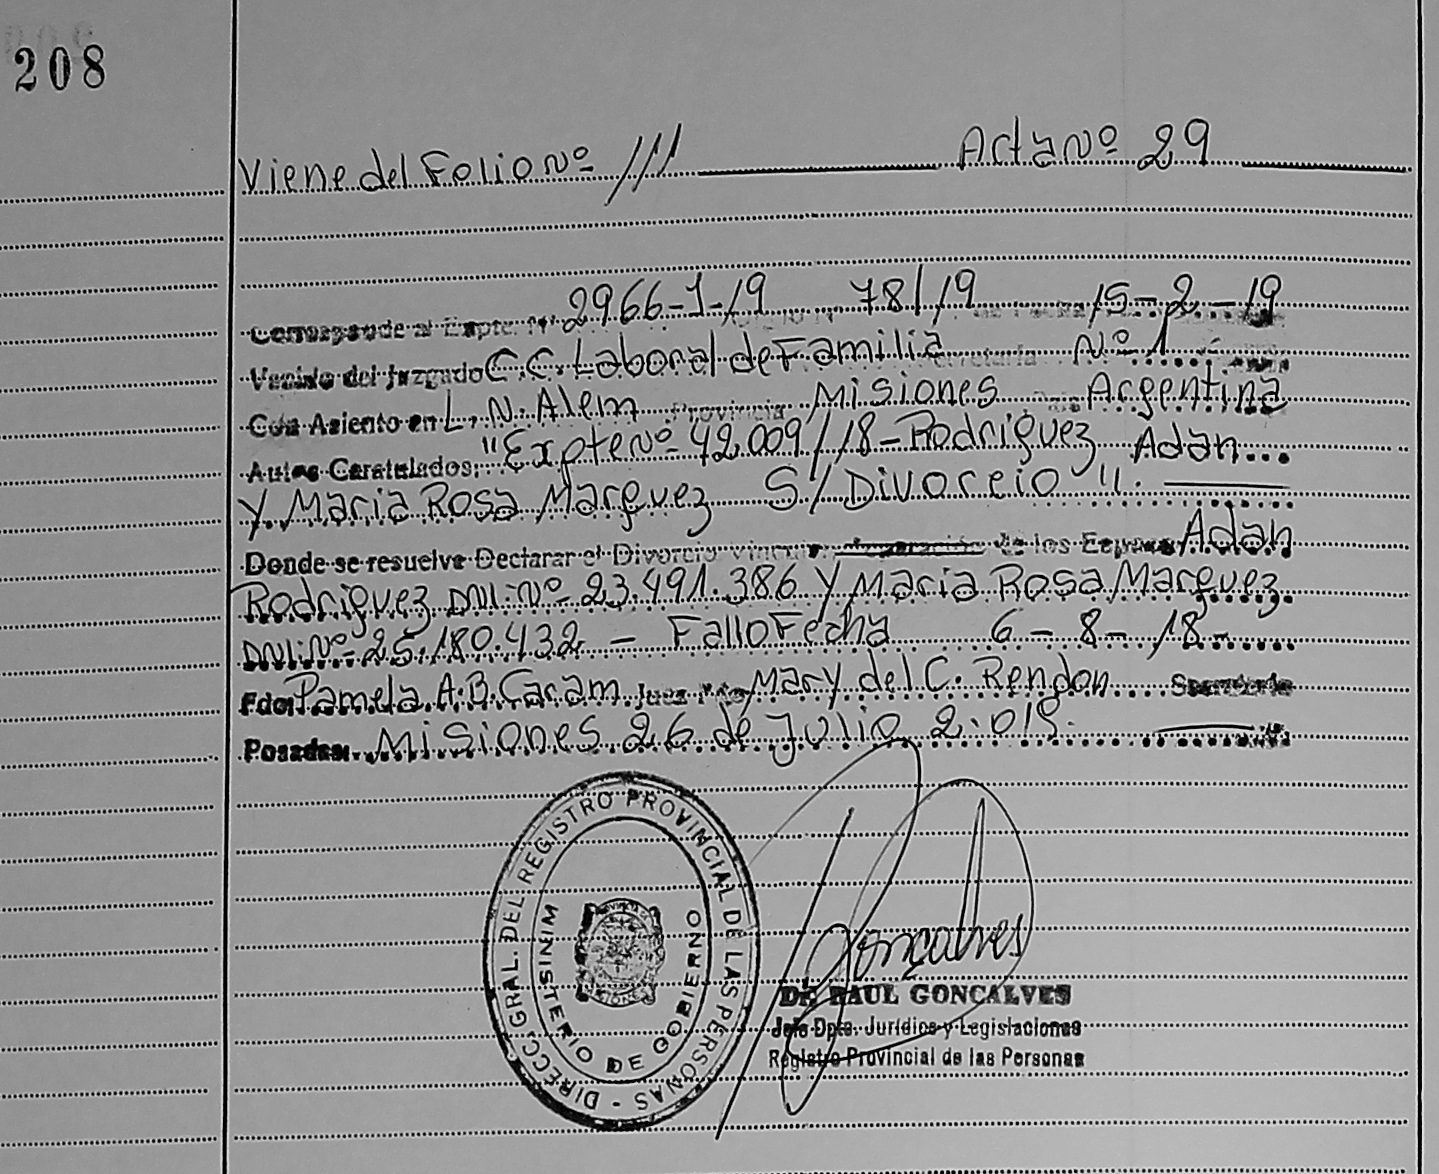 208
Viene del Folio Nº /// Acta Nº 29
Corresponde al Expte. Nº 2966-1-19 78/19 15-2-19
Venido del Juzgado C.C. Laboral de Familia Secretaría Nº 1
Con Asiento en L. N. Alem Provincia Misiones Argentina
Autos Caratulados: "Expte Nº 42.009/18-Rodriguez Adan
Y Maria Rosa Marquez S/Divorcio".
Donde se resuelve Declarar el Divorcio de los Esposos Adan
Rodriguez DNI:Nº 23.491.386 Y Maria Rosa Marquez.
DNI:Nº 25.180.432 - Fallo Fecha 6-8-18-
Fdo: Pamela A.B. Caram Juez Mary del C. Rendon Secretaria
Posadas. Misiones 26 de Julio 2.019.
DIRECC. GRAL. DEL REGISTRO PROVINCIAL DE LAS PERSONAS -
MINISTERIO DE GOBIERNO
Goncalves
Dr. RAUL GONCALVES
Jefe Dpto. Jurídico y Legislaciones
Registro Provincial de las Personas